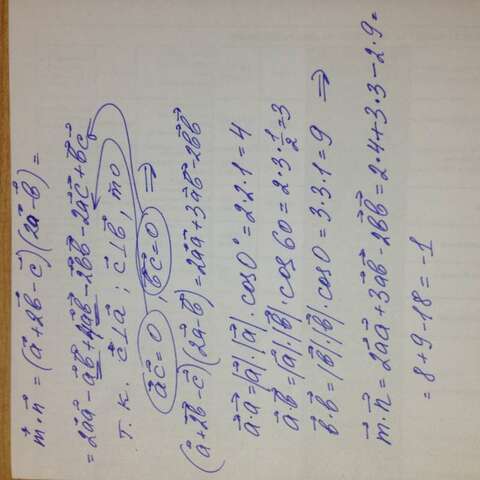 m⃗·n⃗ = (a⃗+2b⃗-c⃗)(2a⃗-b⃗) =
= 2a⃗a⃗ - a⃗b⃗ + 4a⃗b⃗ - 2b⃗b⃗ - 2a⃗c⃗ + b⃗c⃗
т.к. c⃗⊥a⃗ ; c⃗⊥b⃗, то
a⃗c⃗=0 , b⃗c⃗=0 ⇒
(a⃗+2b⃗-c⃗)(2a⃗-b⃗) = 2a⃗a⃗+3a⃗b⃗-2b⃗b⃗
a⃗·a⃗ = |a⃗|·|a⃗|·cos0° = 2·2·1 = 4
a⃗·b⃗ = |a⃗|·|b⃗|·cos60 = 2·3·1/2 = 3
b⃗·b⃗ = |b⃗|·|b⃗|·cos0 = 3·3·1 = 9 ⇒
m⃗·n⃗ = 2a⃗a⃗+3a⃗b⃗-2b⃗b⃗ = 2·4+3·3-2·9 =
= 8+9-18 = -1